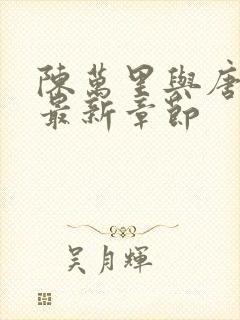 陳萬里與唐
最新章節
吳月輝